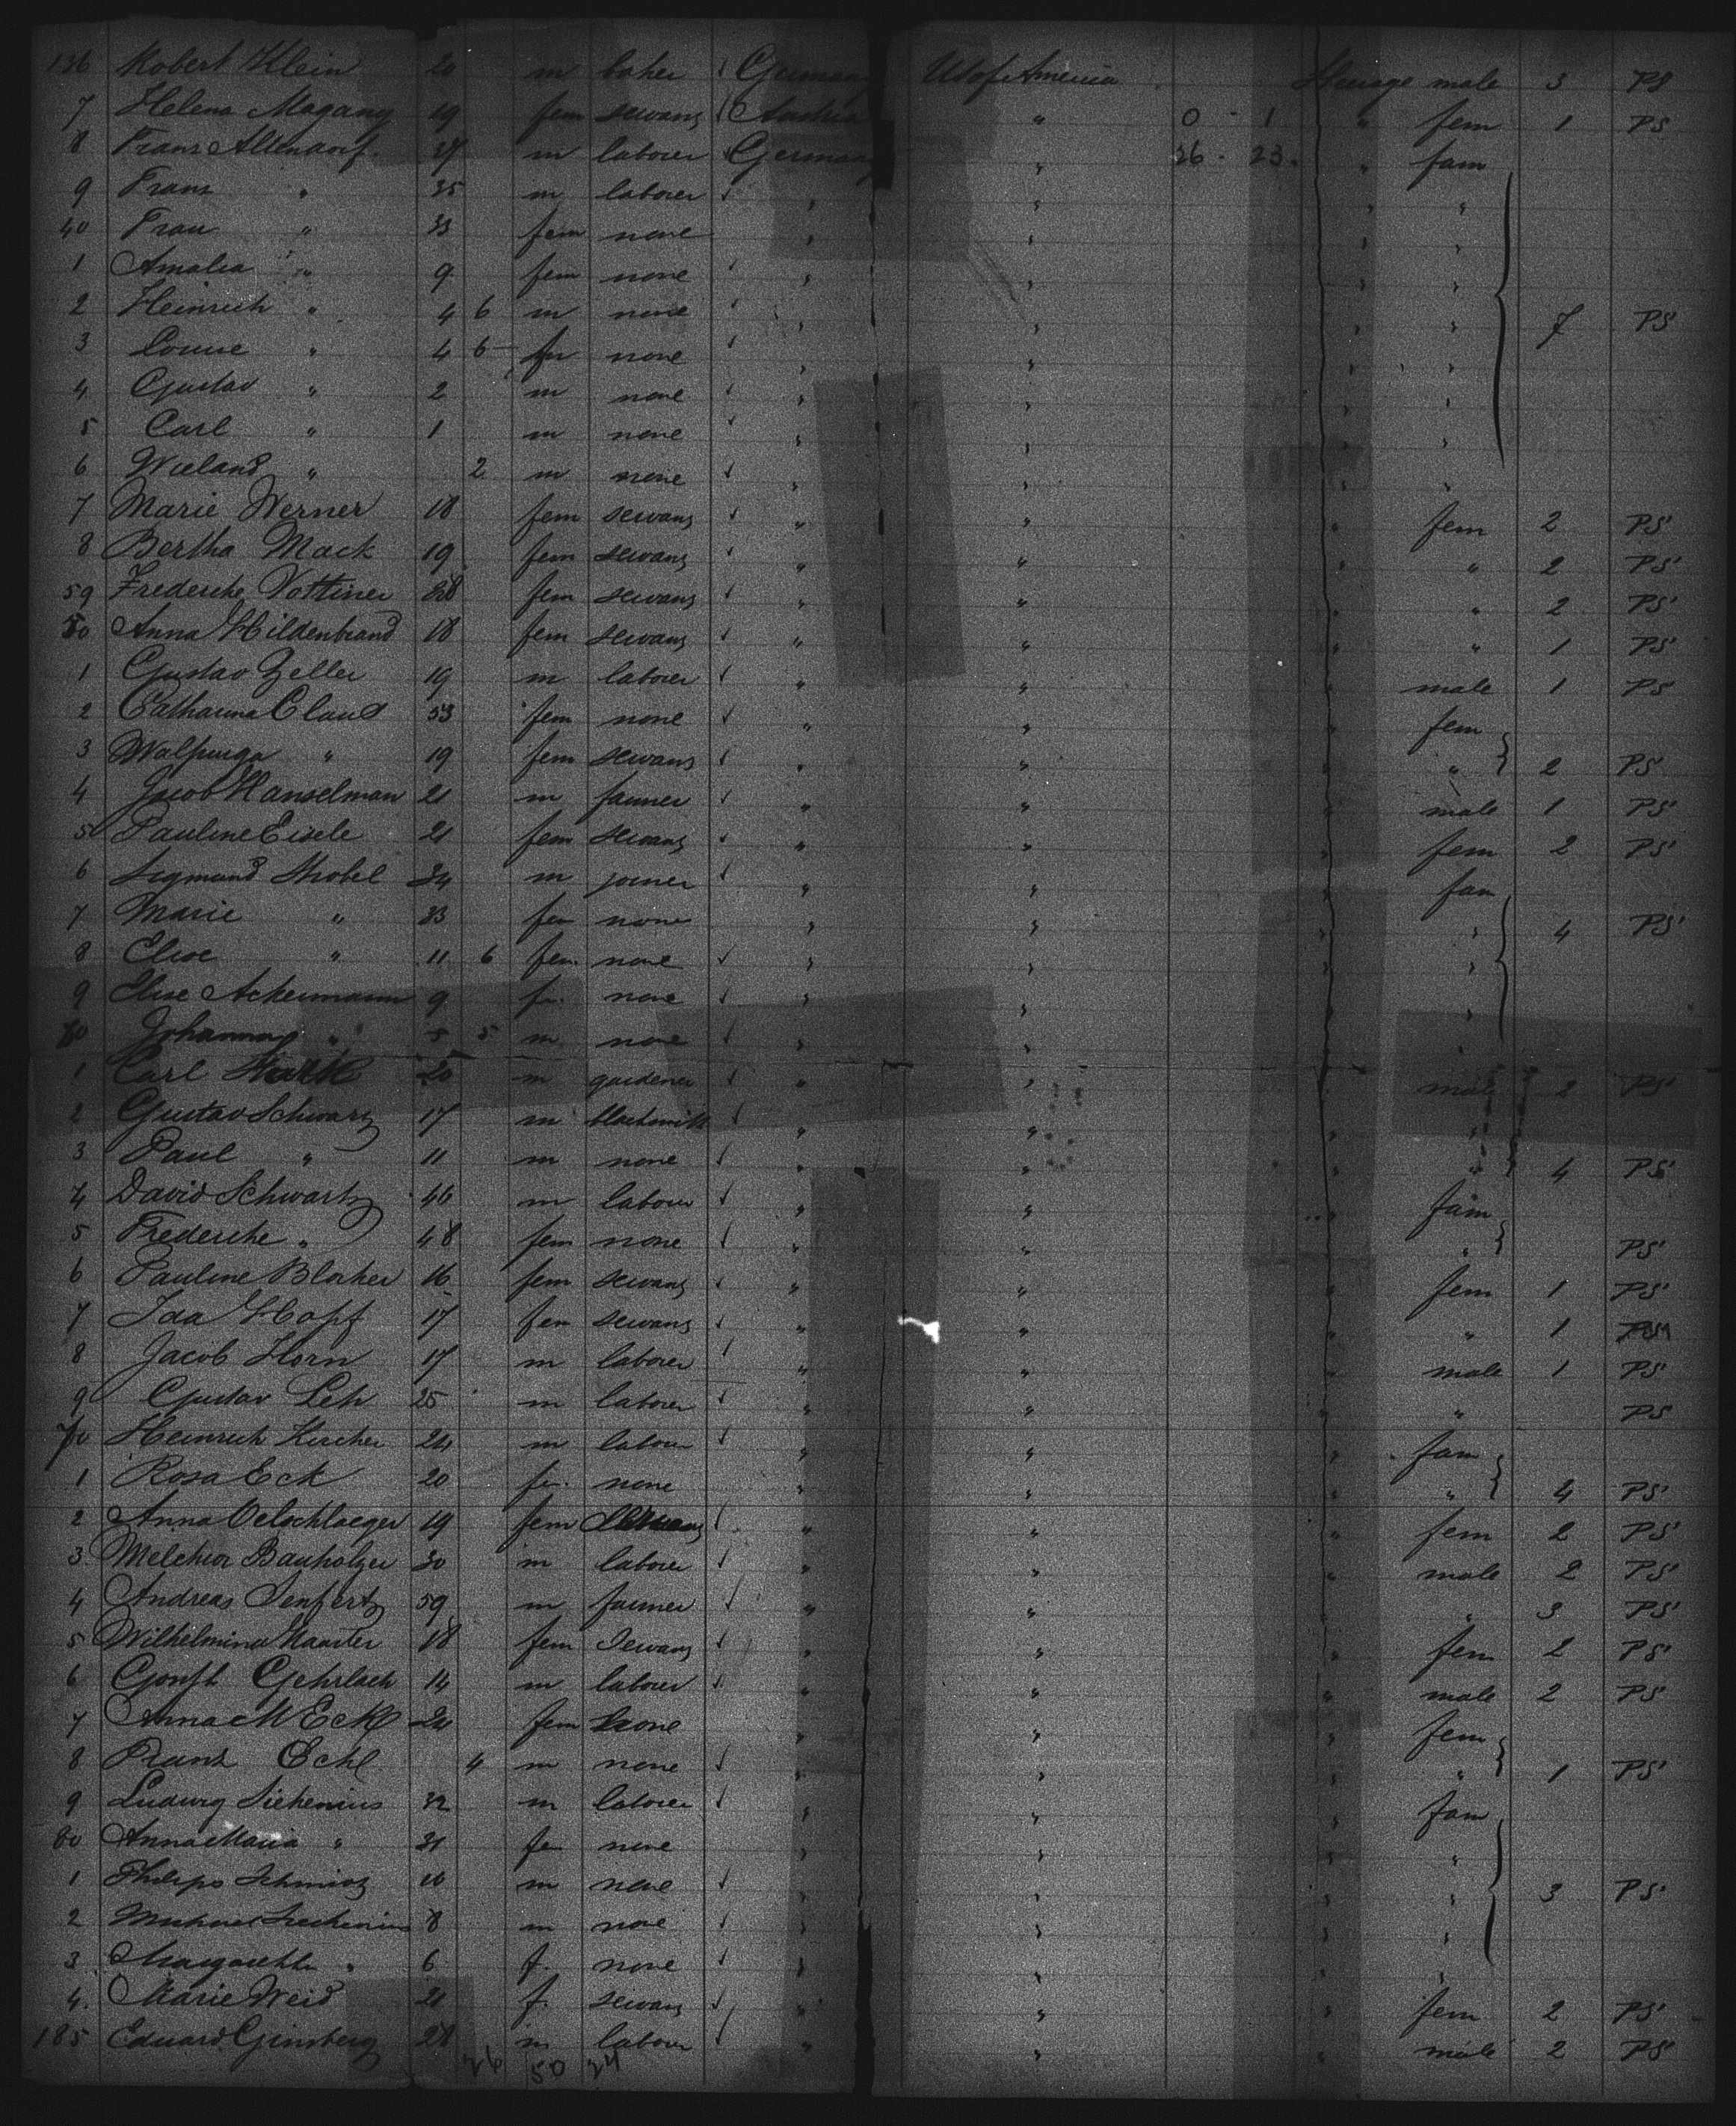 136 Robert Klein 20 m baker Germany U S of America Steerage male 3 PS
7 Helena Magang 19 fem servang Austria " 0 - 1 " fem 1 PS
8 Franz Altendorf 37 m laborer Germany " 26 - 23 " fam
9 Franz " 35 m laborer " " " "
40 Frau " 33 fem none " " " "
1 Amalia " 9 fem none " " " "
2 Heinrich " 4 6 m none " " " " 7 PS
3 Louise " 4 6 fm none " " " "
4 Gustav " 2 m none " " "
5 Carl " 1 m none " " "
6 Wieland " 2 m none " " "
7 Marie Werner 18 fem servang " " " fem 2 PS
8 Bertha Mack 19 fem servang " " " " 2 PS
59 Frederike Vottiner fem servang " " " " 2 PS
50 Anna Hildenbrand 18 fem servang " " " " 1 PS
1 Gustav Zeller 19 m laborer " " " male 1 PS
2 Catharina Claus 53 fem none " " " fem
3 Walpurga " 19 fem servans " " " " 2 PS
4 Jacob Hanselman 21 m farmer " " " male 1 PS
5 Pauline Eisele 21 fem servang " " " fem 2 PS
6 Sigmund Strobel 34 m joiner " " " fam
7 Marie " 33 fem none " " " " 4 PS
8 Elise " 11 6 fem none " " " "
9 Elise Ackermann 9 fe. none " "
60 Johannes " 5 m none " "
1 Carl 20 m gardener " " male 2 PS
2 Gustav Schwarz 17 m blacksmith " " " "
3 Paul " 11 m none " " " " 4 PS
4 David Schwartz 46 m laborer " " " fam
5 Frederike " 48 fem none " " " " PS
6 Pauline Blocher 16 fem servang " " " fem 1 PS
7 Ida Hopf 17 fem servang " " " " 1
8 Jacob Horn 17 m laborer " " " male 1 PS
9 Gustav Leh 25 m laborer " " " " PS
70 Heinrich Kircher 24 m laborer " " " fam
1 Rosa Eck 20 fe. none " " " " 4 PS
2 Anna Oelschlaeger 19 fem servang " " " fem 2 PS
3 Melchior Bauholzer 30 m laborer " " " male 2 PS
4 Andreas Senfertz 59 m farmer " " " " 3 PS
5 Wilhelmina 18 fem Servang " " " fem 2 PS
6 Gehrlach 14 m laborer " " " male 2 PS
7 Anna M Eckl 24 fem none " " " fem
8 Franz Eckl 4 m none " " " " 1 PS
9 Ludwig Siehenius 32 m laborer " " " fam
80 Anna Maria " 31 fe none " " " "
1 Philipp Schmitz 10 m none " " " " 3 PS
2 8 m none " " " "
3 Margarethe " 6 f. none " " "
4. Marie Weid 21 f. servang " " " fem 2 PS
185 Eduard Ginsberg 28 m laborer " " " male 2 PS
26 50 24